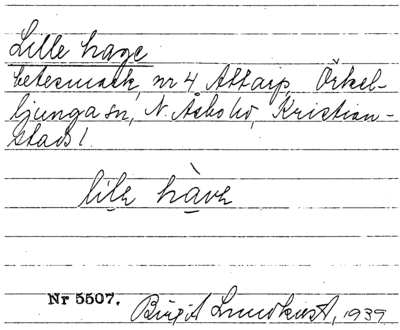 Lille hage
betesmark, nr 4 Attarp, Örkel-
ljunga sn, N. Åsbo hd, Kristian-
stads l.
lile håve
Nr 5507.
Birgit Lundkvist, 1939